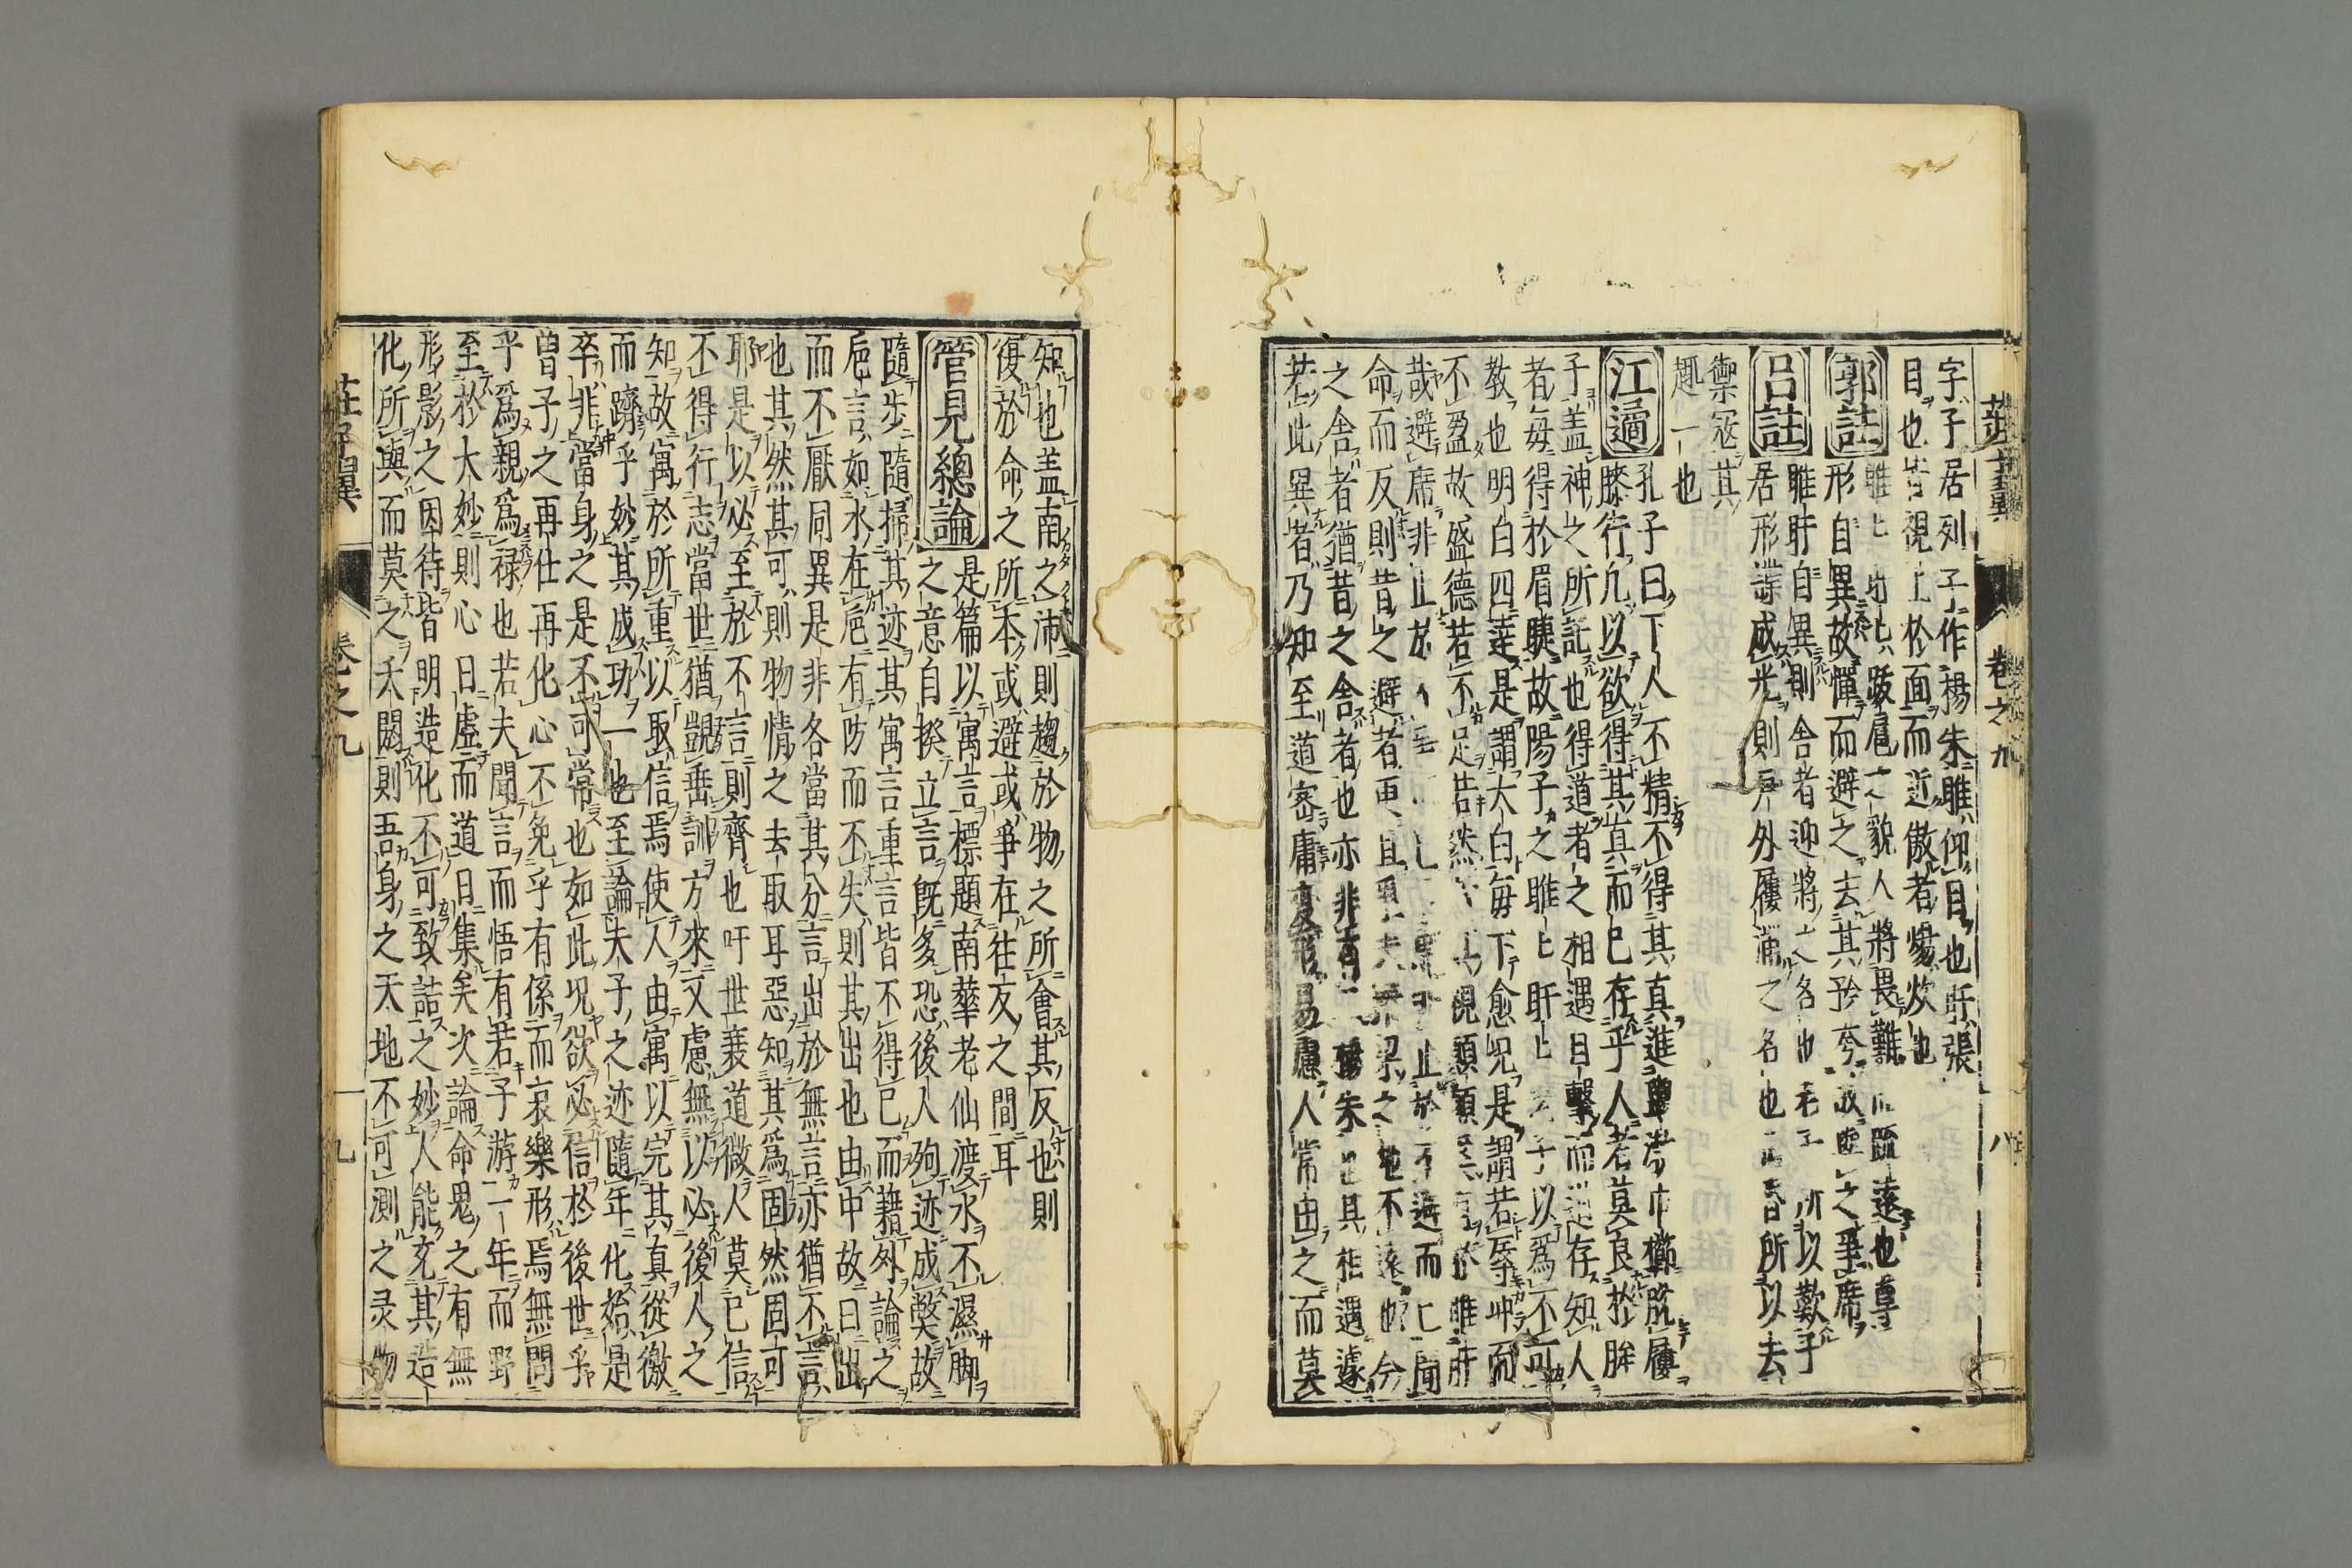 字子居列子作楊朱睢仰目也盱張
目也皆視上於面而近傲者煬炊也
郭註 睢睢盱盱跋扈之貌人將畏難而疏遠也尊
形自異故憚而避之去其矜夸故與之爭席
睢盱自異則舍者迎將之各也老子所以歎于
呂註 居形諜成光則戶外屨滿之各也昏所以去
禦寇其
趣一也
江遹 孔子曰下人不精不得其真進盥漱巾櫛脫屨
膝行凢以欲得其真而已存乎人者莫良於眸
子盖神之所託也得道者之相遇目擊而道存知人
者毎得於眉睫故陽子之睢睢盱盱老子以爲不可
教也明白四達是謂大白毎下愈况是謂若辱冲而
不盈故盛德若不足
哉避席非止於 而止於不避而
命而反則昔之避者更且 之地不遠也今
之舍者猶昔之舍者也亦非有 楊朱也其相遇遽
若此異者乃知至道密庸變形易慮人常由之而莫
知也盖南之沛則趨於物之所會其反也則
復於命之所本或避或爭在往反之間耳
管見總論 是篇以寓言標題南華老仙渡水不濕脚
之意自揆立言旣多恐後人殉迹成獘故
隨步隨掃其迹其寓言重言皆不得已而藉外論之
巵言如水在巵有防而不失則其出也由中故日出
而不厭同異是非各當其分言出於無言亦猶不言
也其然其可則物情之去取耳惡知其爲固然固可
耶是以必至於不言則齊也吁世衰道微人莫已信
不得行志當世猶覬垂訓方來又慮無以必後人之
知故寓於所重以取信焉使人由寓以完其真從徵
而躋乎妙其成功一也至論夫子之迹隨年化始是
卒非當身之是不可常也如此况欲必信於後世乎
曽子之再仕再化心不免乎有係而哀樂形焉無問
乎爲親爲禄也若夫聞言而悟有若子游一年而野
至於大妙則心日虛而道日集矣次論命鬼之有無
形影之因待皆明造化不可致詰之妙人能充其造
化所與而莫之夭閼則吾身之天地不可測之灵物
莊子翼 卷之九 八
莊子翼 卷之九 一九